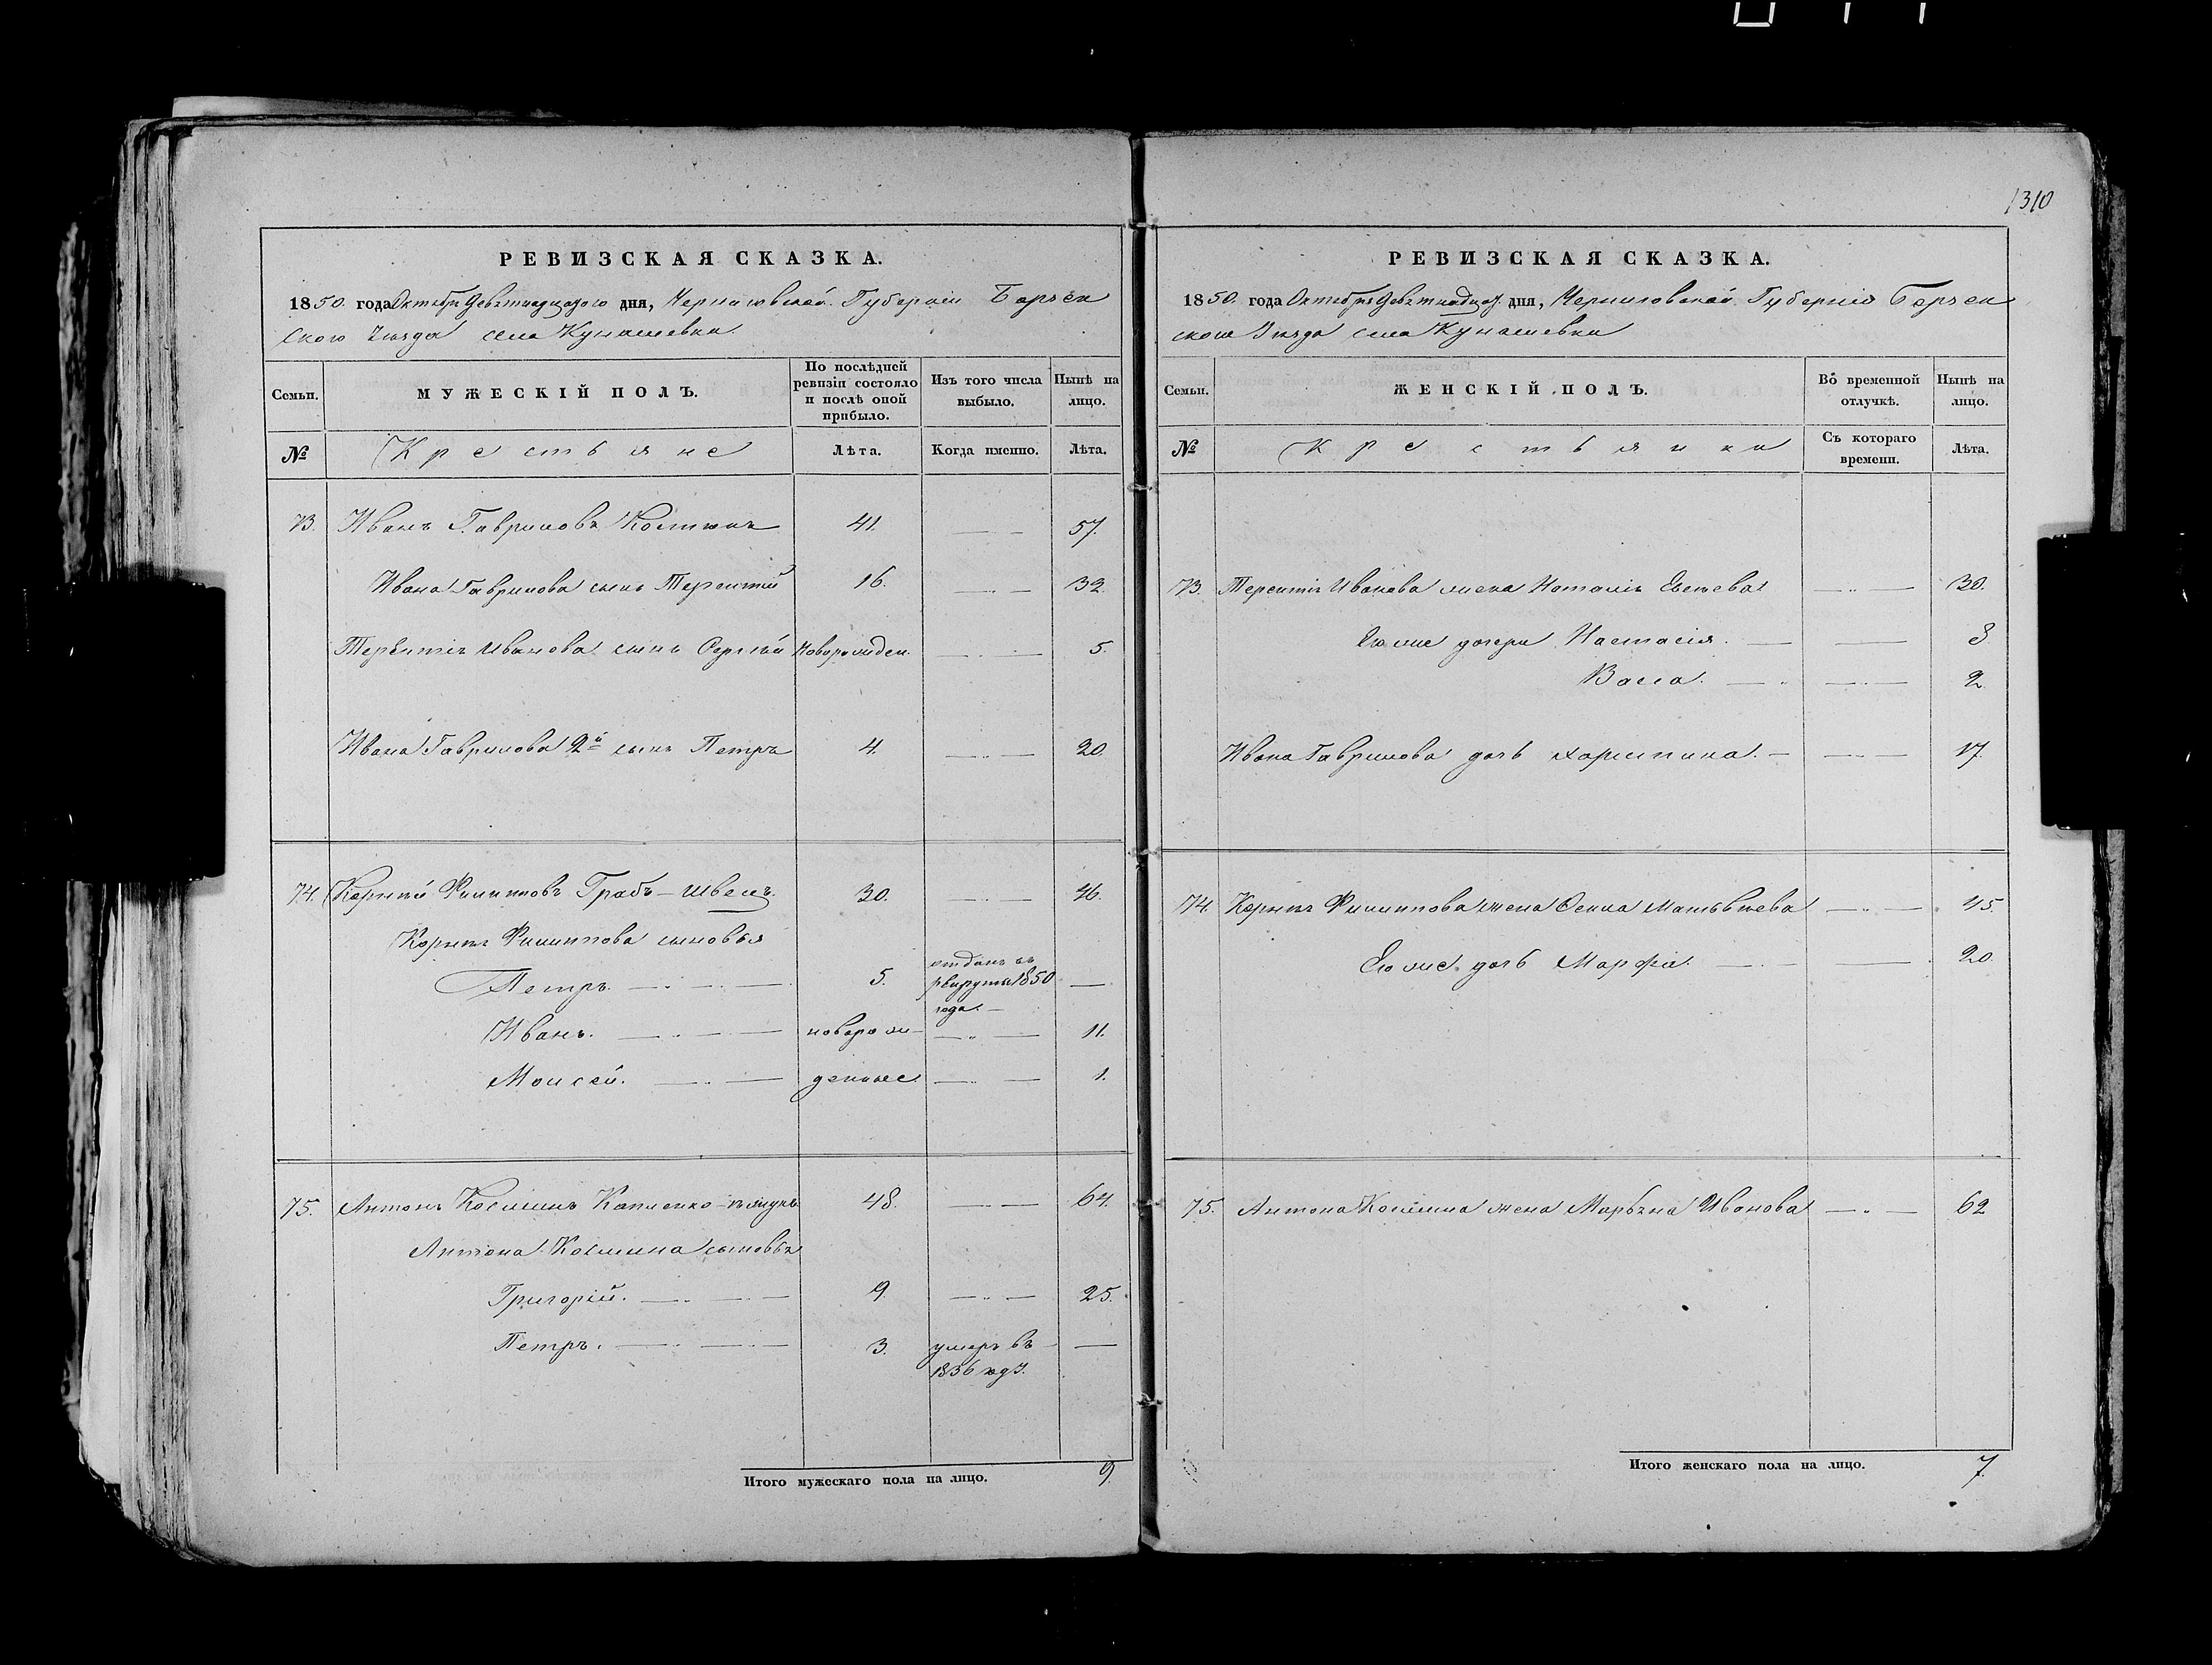 1310
РЕВИЗСКАЯ СКАЗКА.
1850. года Октября девятнадцатого дня, Черниговской Губерніи Борзен
ского Уѣзда села Кунашевки
Семьи. МУЖЕСКІЙ ПОЛЪ. По послѣдней ревизіи состояло и послѣ оной прибыло. Изъ того числа выбыло. Нынѣ на лицо.
№ Крестьяне Лѣта. Когда именно. Лѣта.
73. Иванъ Гавриловъ Костюкъ 41. 57.
Ивана Гаврилова сынъ Терентій 16. 32.
Терентія Иванова сынъ Сергѣй Новорожден. 5.
Ивана Гаврилова 2й сынъ Петръ 4. 20.
74. Корнѣй Филипповъ Грабъ-Швецъ. 30. 46.
Корнѣя Филиппова сыновья
Петръ. 5. отданъ въ рекруты 1850 года.
Иванъ. новорож- 11.
Моисей. денные 1.
75. Антонъ Косминъ 48. 64.
Антона Космина сыновья
Григорій. 9. 25.
Петръ. 3. умеръ въ 1836 году.
Итого мужескаго пола на лицо. 9.
РЕВИЗСКАЯ СКАЗКА.
1850. года Октября девятнадцат. дня, Черниговской Губерніи Борзен
ского Уѣзда села Кунашевки
Семьи. ЖЕНСКІЙ ПОЛЪ. Во временной отлучкѣ. Нынѣ на лицо.
№ Крестьянки Съ котораго времени. Лѣта.
73. Терентія Иванова жена Наталія 30.
Его же дочери Настасія. 8
Васса. 2
Ивана Гаврилова дочь Харитина. 17.
74. Корнѣя Филиппова жена Ѳекла Матвѣева 45.
Его же дочь Марфа. 20
75. Антона Космина жена Марьяна Иванова 62
Итого женскаго пола на лицо. 7.